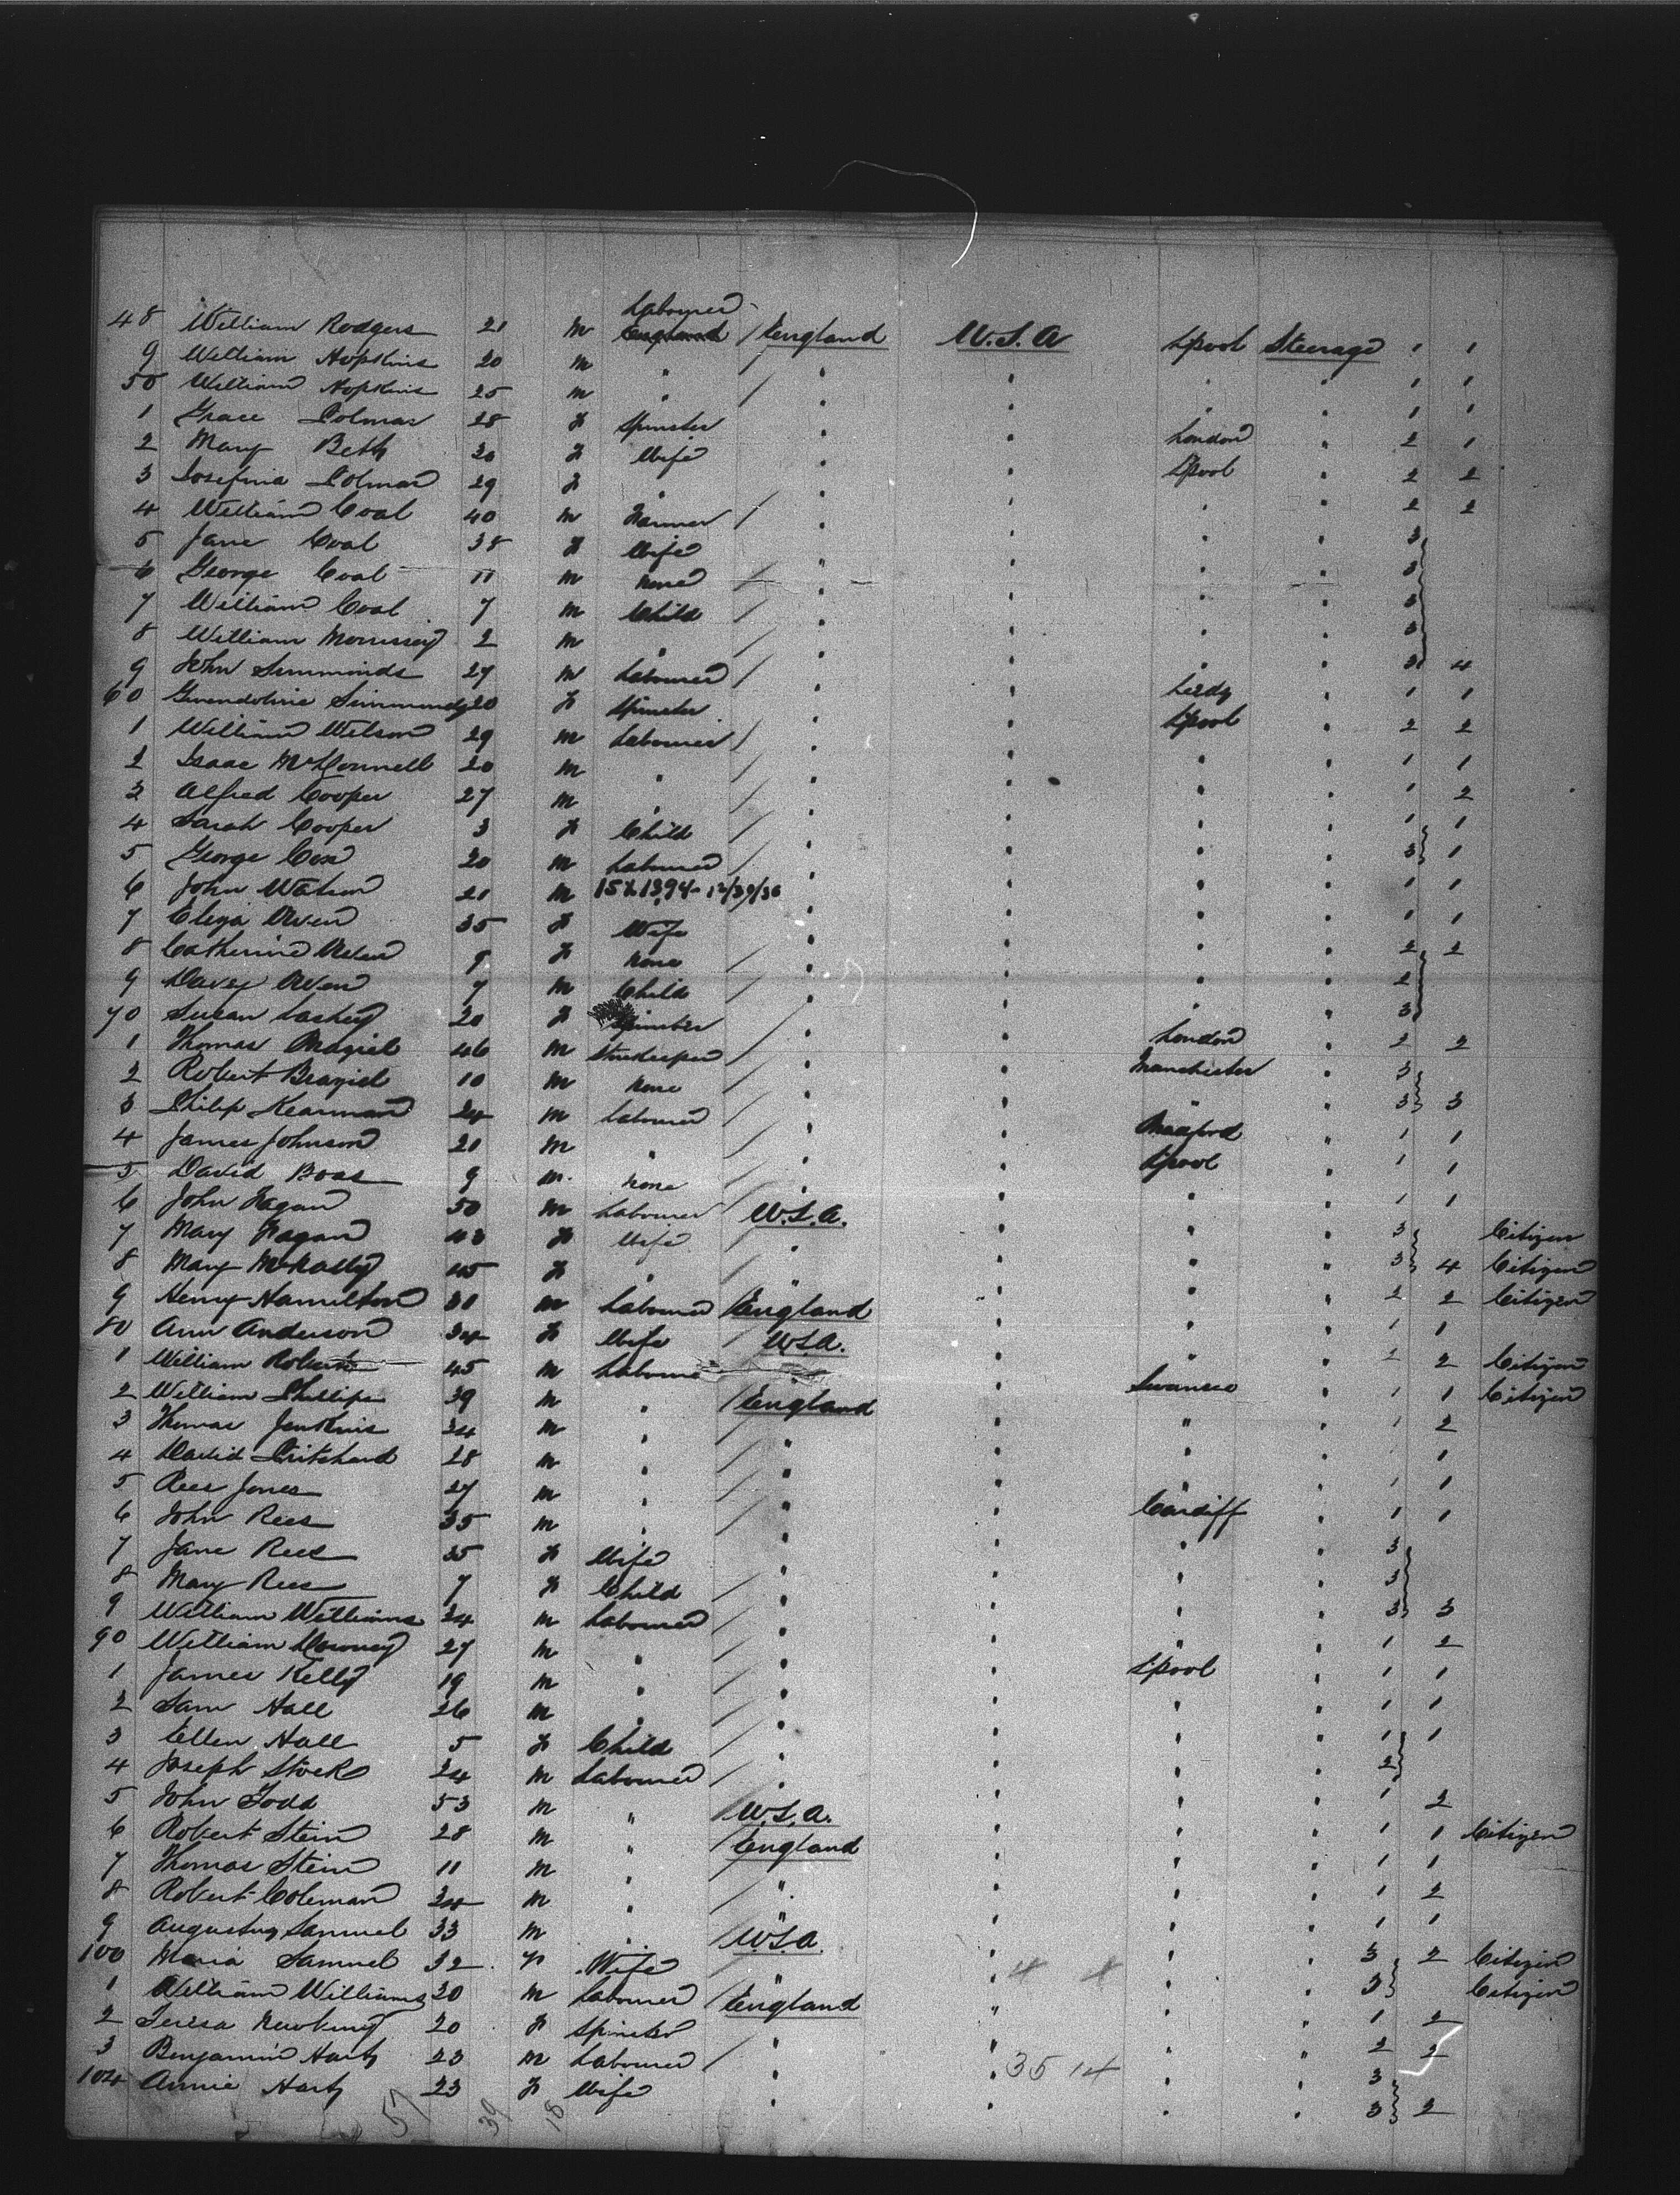 Labourer
48 William Rodgers 21 m England / England U.S.A Lpool Steerage 1 1
9 William Hopkins 20 m " / " " " " 1 1
50 William Hopkins 25 m " / " " " " 1 1
1 Grace 28 f Spinster " " London " 2 1
2 Mary Beth 20 f Wife " " Lpool " 2 2
3 Josefina 29 f " " " " " 2 2
4 William Coal 40 m Farmer / " " " " 3
5 Jane Coal 38 f Wife " " " " 3
6 George Coal 11 m None / " " " " 3
7 William Coal 7 m Child / " " " " 3
8 William Morrissey 2 m " / " " " " 3 4
9 John Simmonds 27 m Labourer / " " Leeds " 1 1
60 Gwendoline Simmonds 20 f Spinster " " Lpool " 2 2
1 William Wilson 29 m Labourer / " " " " 1 1
2 Isaac McConnell 20 m " / " " " " 1 2
3 Alfred Cooper 27 m " / " " " " 1 1
4 Sarah Cooper 3 f Child / " " " " 3 1
5 George Cox 20 m Labourer / " " " " 1 1
6 John Watson 21 m 15X1394-12/30/36 " " " " 1 1
7 Eliza Owen 35 f Wife " " " " 2 2
8 Catherine Owen 9 f None / " " " " 2
9 Davey Owen 7 m Child / " " " " 3
70 Susan Laskey 20 f Spinster / " " London " 2 2
1 Thomas 46 m Storekeeper / " " Manchester " 3
2 Robert Braziel 10 m None / " " " " 3 3
3 Philip Kearman 24 m Labourer / " " " 1 1
4 James Johnson 20 m " / " " Lpool " 1 1
5 David Boas 9 m None / " " " " 1 1
6 John Fagan 50 m Labourer / U.S.A. " " " 3 Citizen
7 Mary Fagan 43 f Wife " " " " 3 4 Citizen
8 Mary McNally 45 f " " " " " 2 2 Citizen
9 Henry Hamilton 30 m Labourer / England " " " 1 1
80 Ann Anderson 34 f Wife / U.S.A. " " " 2 2 Citizen
1 William Roberts 45 m Labourer " " Swansea " 1 1 Citizen
2 William Phillips 39 m " / England " " " 1 2
3 Thomas Jenkins 34 m " / " " " " 1 1
4 David Pritchard 28 m " / " " " " 1 1
5 Rees Jones 27 m " / " " Cardiff " 1 1
6 John Rees 35 m " / " " " " 3
7 Jane Rees 35 f Wife " " " " 3
8 Mary Rees 7 f Child / " " " " 3 3
9 William Williams 34 m Labourer / " " " " 1 2
90 William Downey 27 m " / " " Lpool " 1 1
1 James Kelly 19 m " / " " " " 1 1
2 Sam Hall 26 m " / " " " " 1 1
3 Ellen Hall 5 f Child / " " " " 2
4 Joseph Stock 24 m Labourer / " " " " 1 2
5 John Todd 53 m " / U.S.A. " " " 1 1 Citizen
6 Robert Stein 28 m " / England " " " 1 1
7 Thomas Stein 11 m " / " " " " 1 2
8 Robert Coleman 24 m " / " " " " 1 1
9 Augustus Samuel 33 m " / U.S.A. " " " 3 2 Citizen
100 Maria Samuel 32 f Wife / " " " " 3 Citizen
1 William Williams 20 m Labourer / England " " " 1 2
2 Teresa 20 f Spinster " " " " 2 2
3 Benjamin Hartz 23 m Labourer / " " " " 3
104 Annie Hartz 23 f Wife " " " " 3 2
4 4
35 14
57 39 18